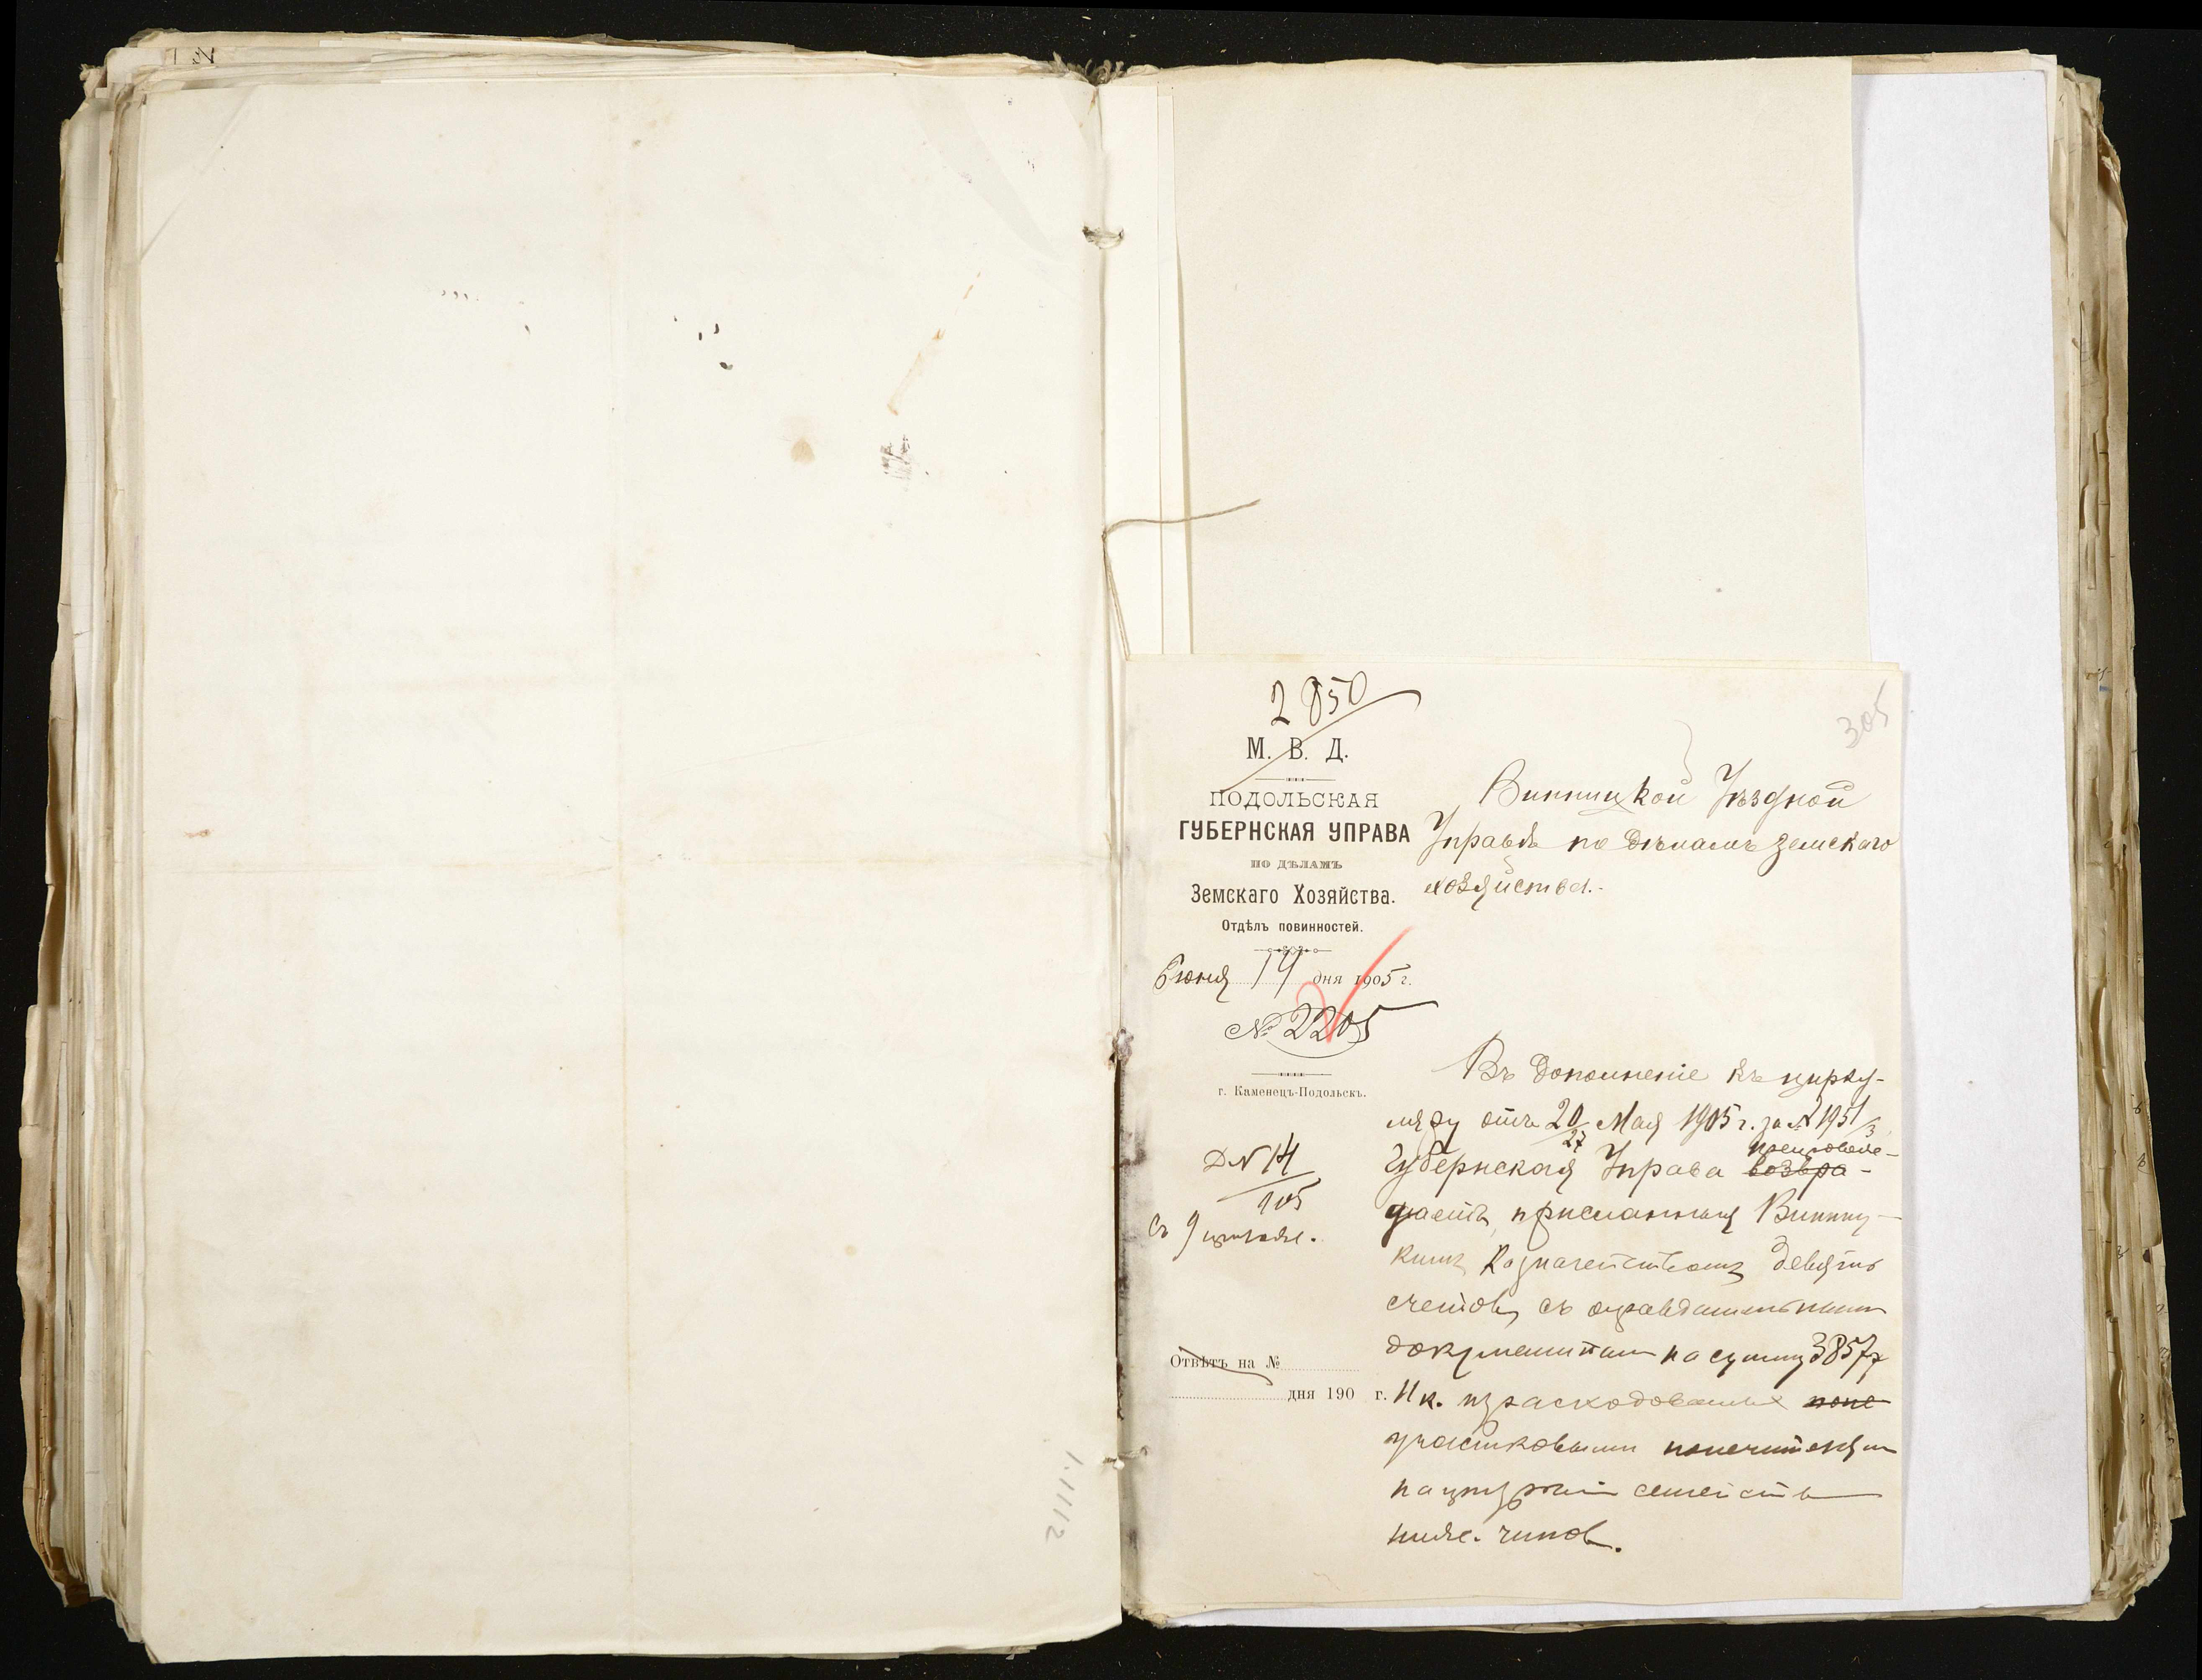 2850
305
М. В. Д.
ПОДОЛЬСКАЯ
ГУБЕРНСКАЯ УПРАВА
ПО ДѢЛАМЪ
Земскаго Хозяйства.
Отдѣлъ повинностей.
Іюня 14 дня 1905 г.
№ 2205
г. Каменецъ-Подольскъ.
Д № 14
105
Отвѣтъ на №
дня 190 г.
Винницкой Уѣздной
Управѣ по дѣламъ земскаго
хозяйства.
Въ дополненіе къ цирку-
ляру отъ 20/27 Мая 1905 г. за № 1951/3
препровож-
Губернская Управа возвра-
даетъ присланныя Винниц-
кимъ Казначействомъ девять
счетовъ съ оправдательными
документами на сумму 3857 р
11 к. израсходованных попе
участковыми попечителями
на призрѣніе семействъ
ниж. чиновъ.